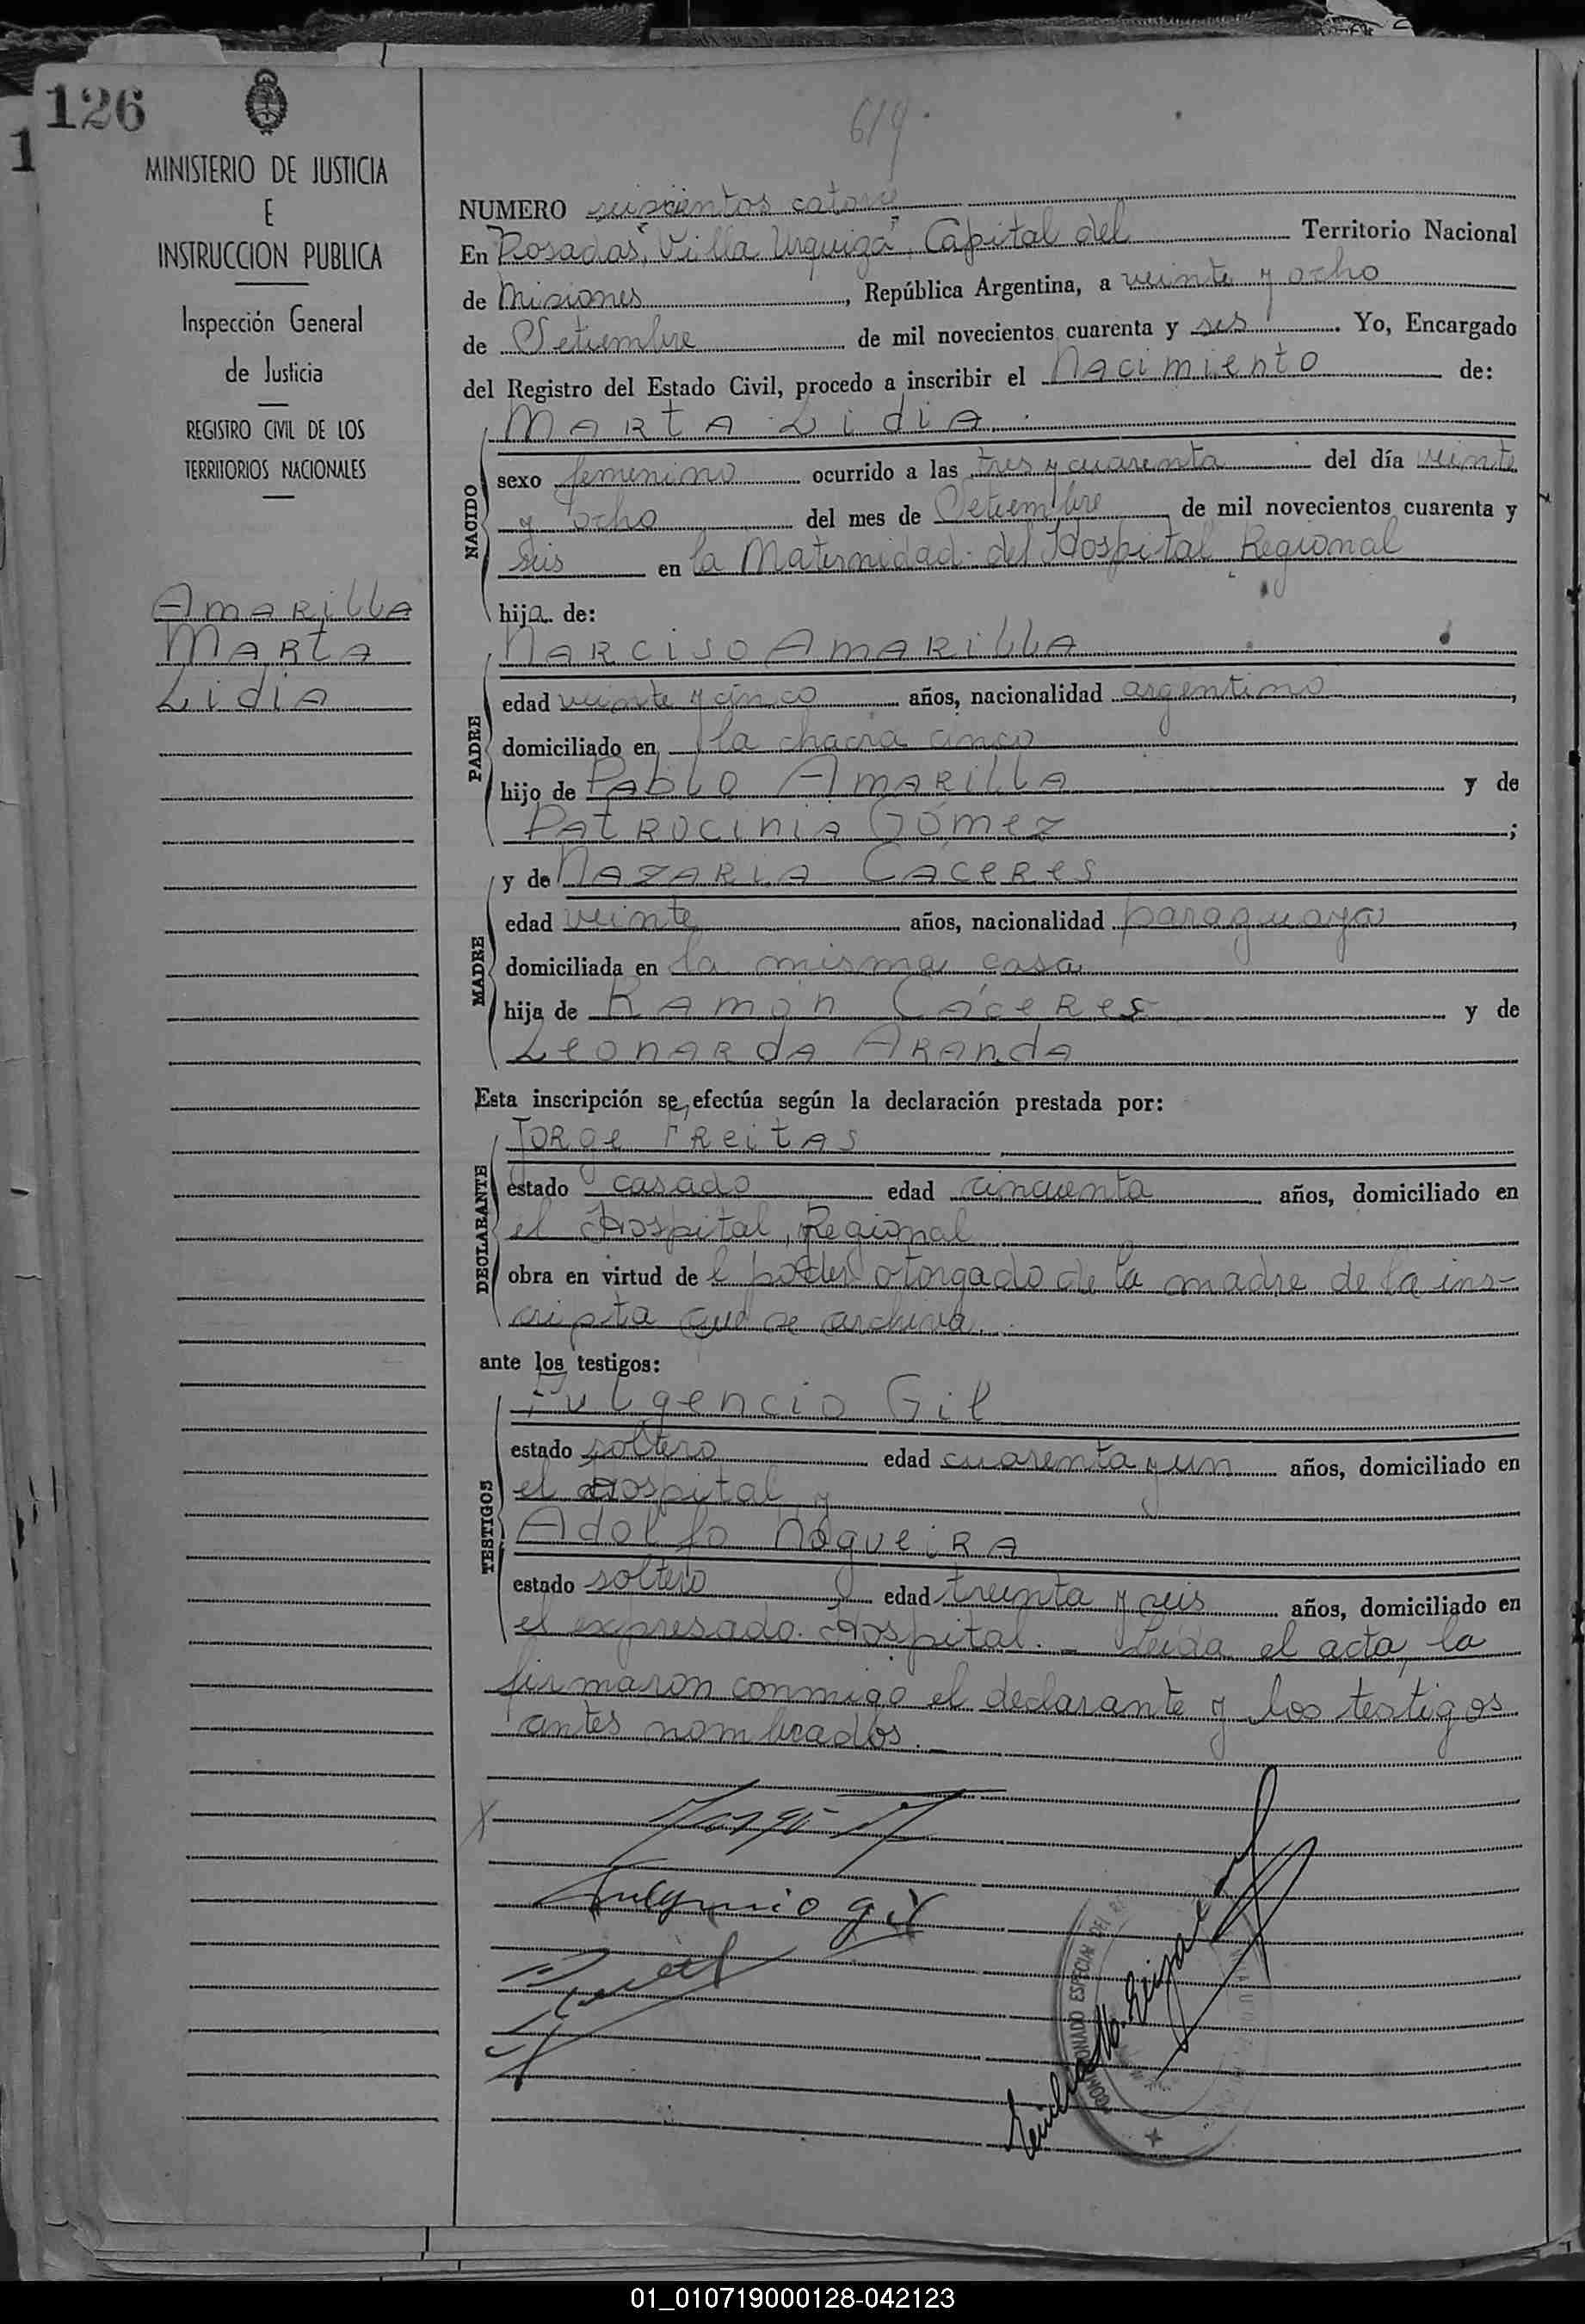 126
1
MINISTERIO DE JUSTICIA
E
INSTRUCCION PUBLICA
Inspección General
de Justicia
REGISTRO CIVIL DE LOS
TERRITORIOS NACIONALES
Amarilla
Marta
Lidia
614.
NUMERO seiscientos catorce
En Posadas, "Villa Urquiza", Capital del Territorio Nacional
de Misiones, República Argentina, a veinte y ocho
de Setiembre de mil novecientos cuarenta y seis. Yo, Encargado
del Registro del Estado Civil, procedo a inscribir el Nacimiento de:
NACIDO
Marta Lidia
sexo femenino ocurrido a las tres y cuarenta del día veinte
y ocho del mes de Setiembre de mil novecientos cuarenta y
seis en la Maternidad del Hospital Regional
hija de:
PADRE
Narciso Amarilla
edad veinte y cinco años, nacionalidad argentino,
domiciliado en la chacra cinco
hijo de Pablo Amarilla y de
Patrocinia Gómez;
MADRE
y de Nazaria Caceres
edad veinte años, nacionalidad paraguaya,
domiciliada en la misma casa
hija de Ramón Cáceres y de
Leonarda Aranda
Esta inscripción se efectúa según la declaración prestada por:
DECLARANTE
Jorge Freitas
estado casado edad cincuenta años, domiciliado en
el Hospital Regional
obra en virtud del poder otorgado de la madre de la ins-
cripta que se archiva.
ante los testigos:
TESTIGOS
Fulgencio Gil
estado soltero edad cuarenta y un años, domiciliado en
el Hospital y
Adolfo Nogueira
estado soltero edad treinta y seis años, domiciliado en
el expresado Hospital. - Leida el acta, la
firmaron conmigo el declarante y los testigos
antes nombrados. -
X
Jorge
Fulgencio Gil
COMISIONADO ESPECIAL DEL
01_010719000128-042123